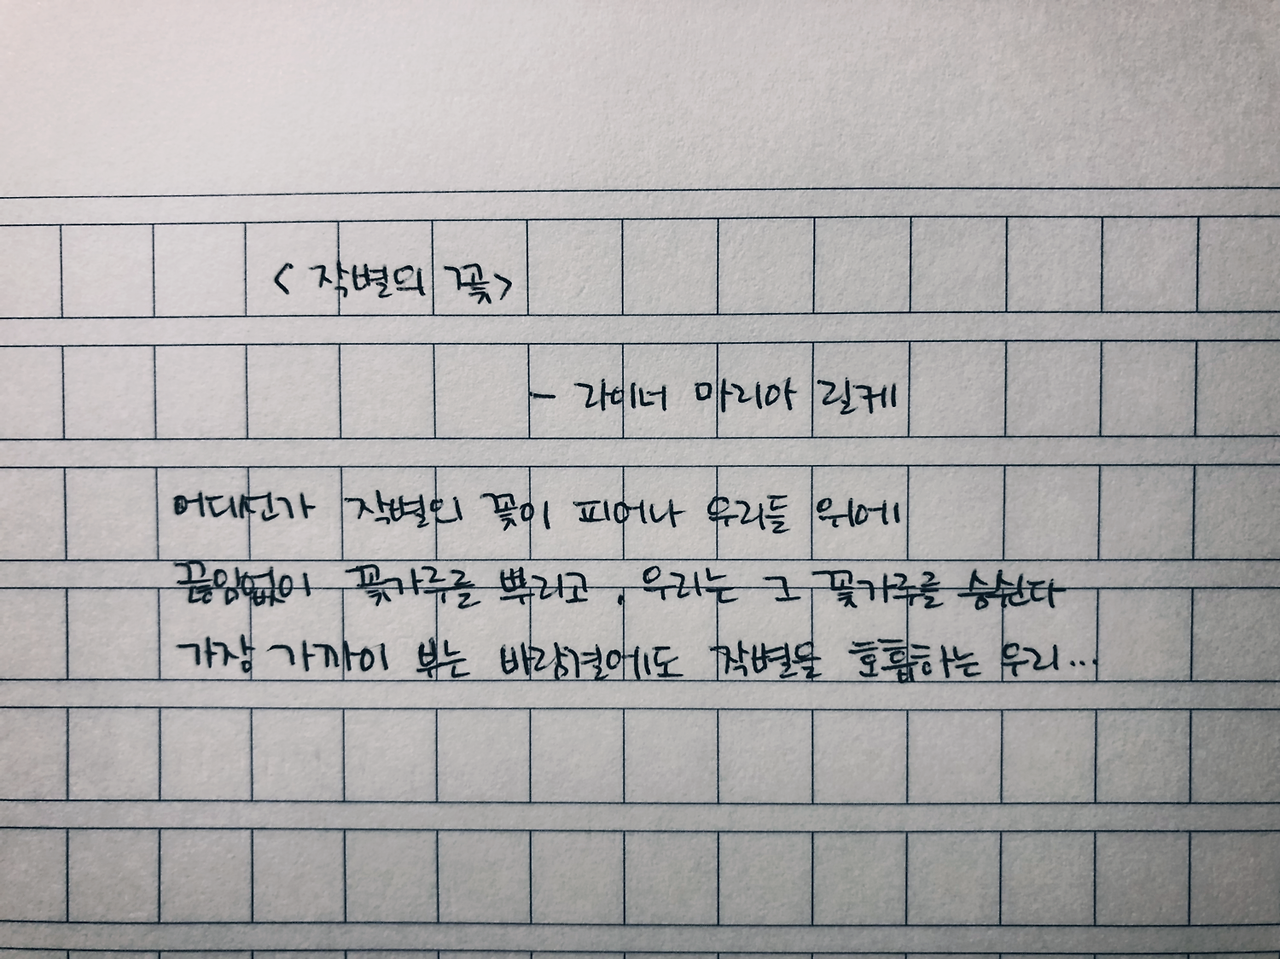 <작별의 꽃>
- 라이너 마리아 릴케
어디선가 작별의 꽃이 피어나 우리들 위에
끊임없이 꽃가루를 뿌리고, 우리는 그 꽃가루를 숨쉰다
가장 가까이 부는 바람결에도 작별을 호흡하는 우리...